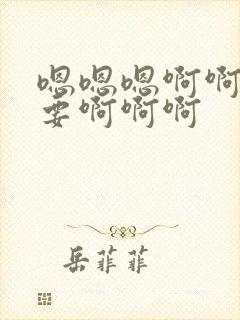 嗯嗯嗯啊啊
要啊啊啊
岳菲菲